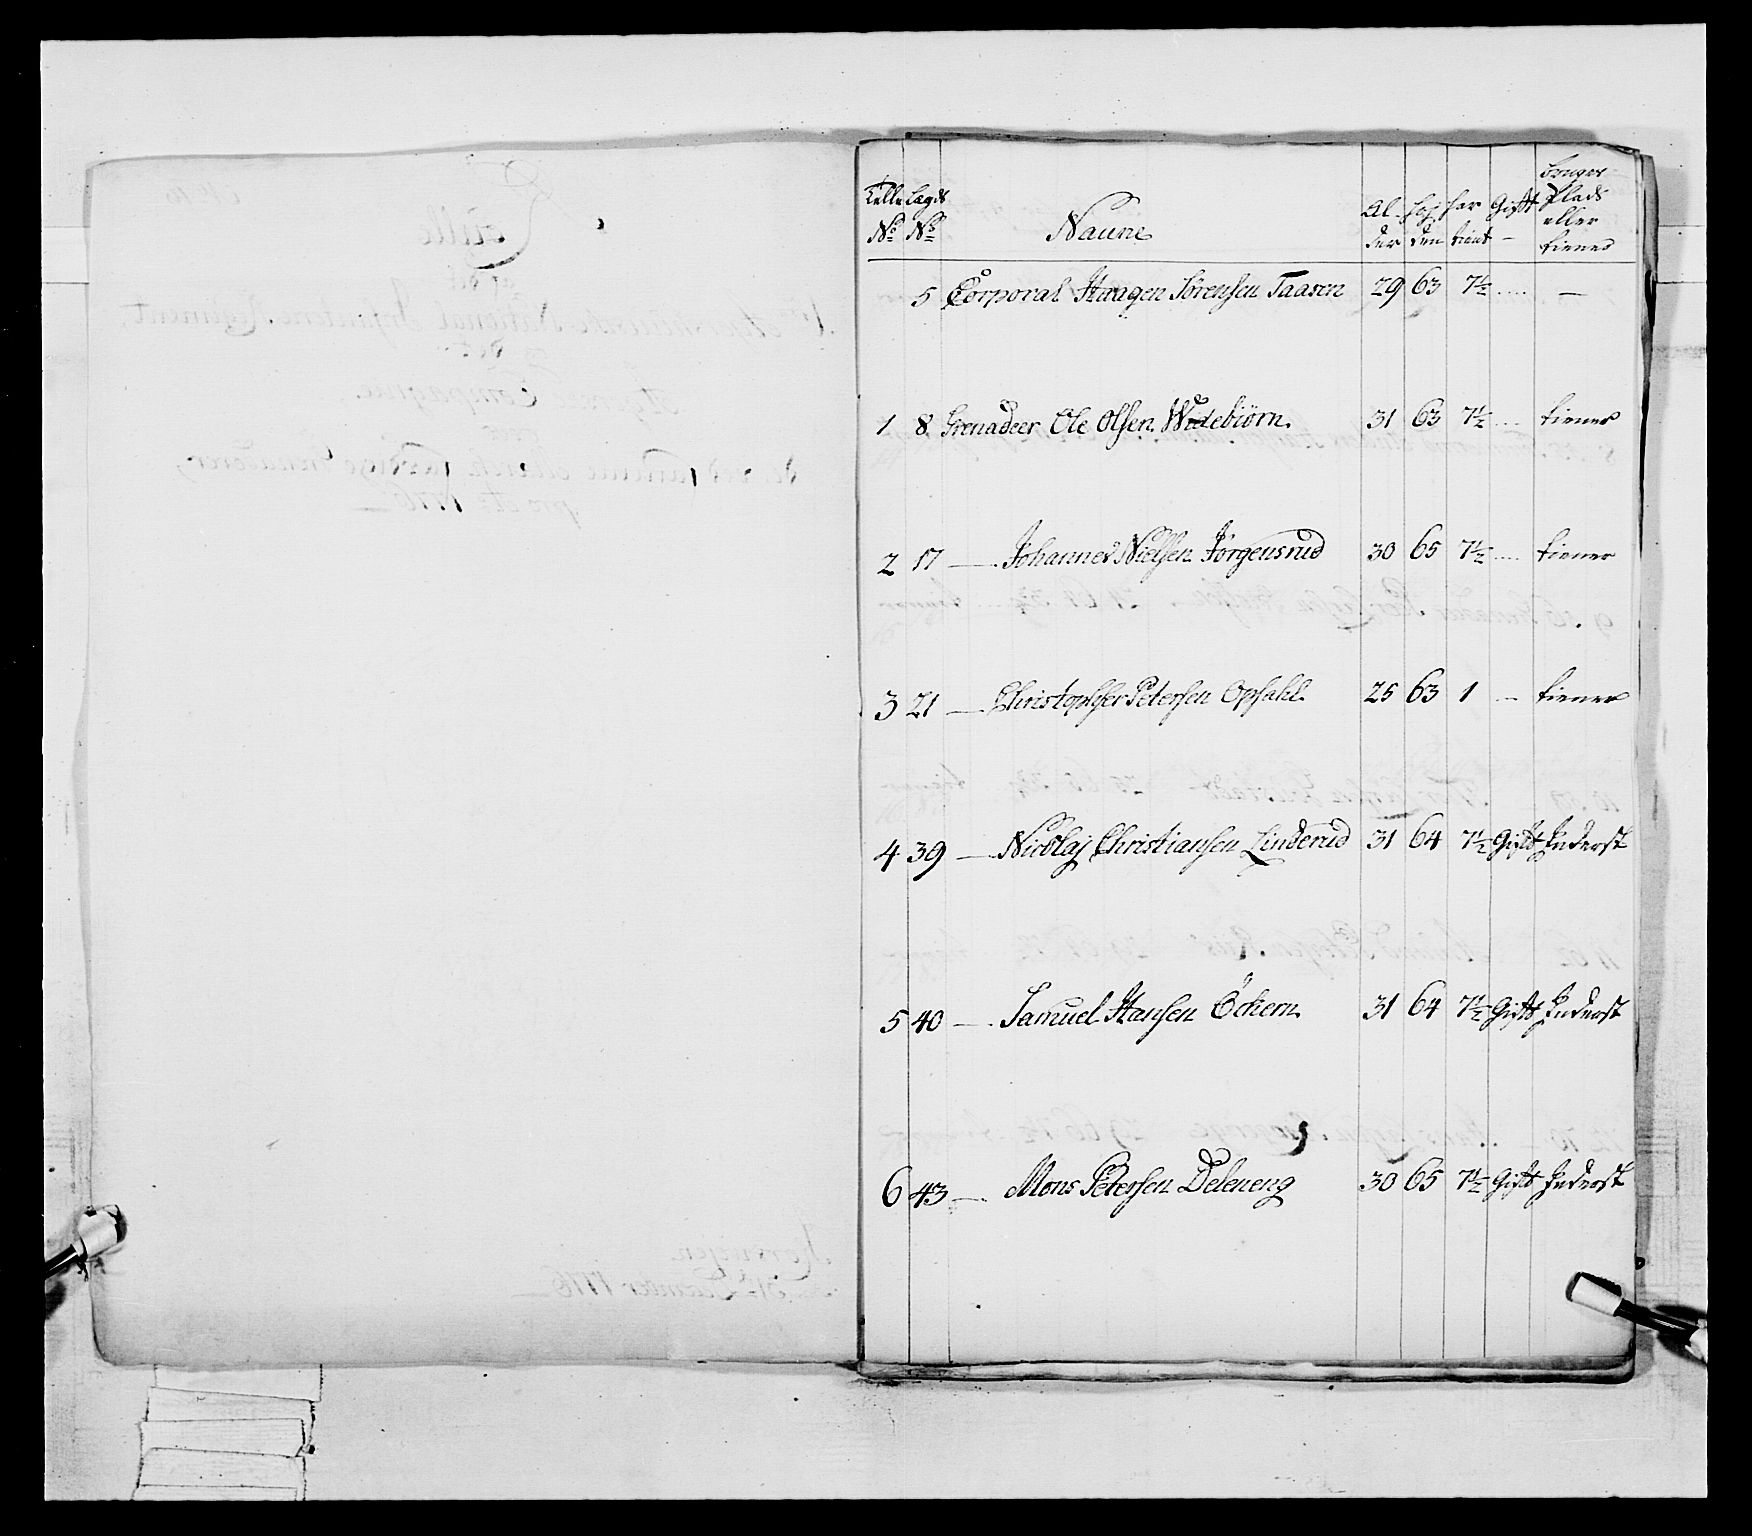 Telle Lægds Naune Al der Høj den har tient Gift bruger Plads eller tiener
No No
5 Corporal Haagen Sørensen Taasen 29 63 7½ .... —
1 8 Grenadeer Ole Olsen Wedebiørn. 31 63 7½ .... tiener
2 17 — Johannes Nielsen Jørgensrud 30 65 7½ .... tiener
3 21 — Christopher Petersen Opsahl 25 63 1 — tiener
4 39 — Nicolaj Christiansen Linderud 31 64 7½ Gift Inderst
5 40 — Samuel Hansen Öckern 31 64 7½ Gift Inderst
6 43 — Mons Petersen Deleneng 30 65 7½ Gift Inderst